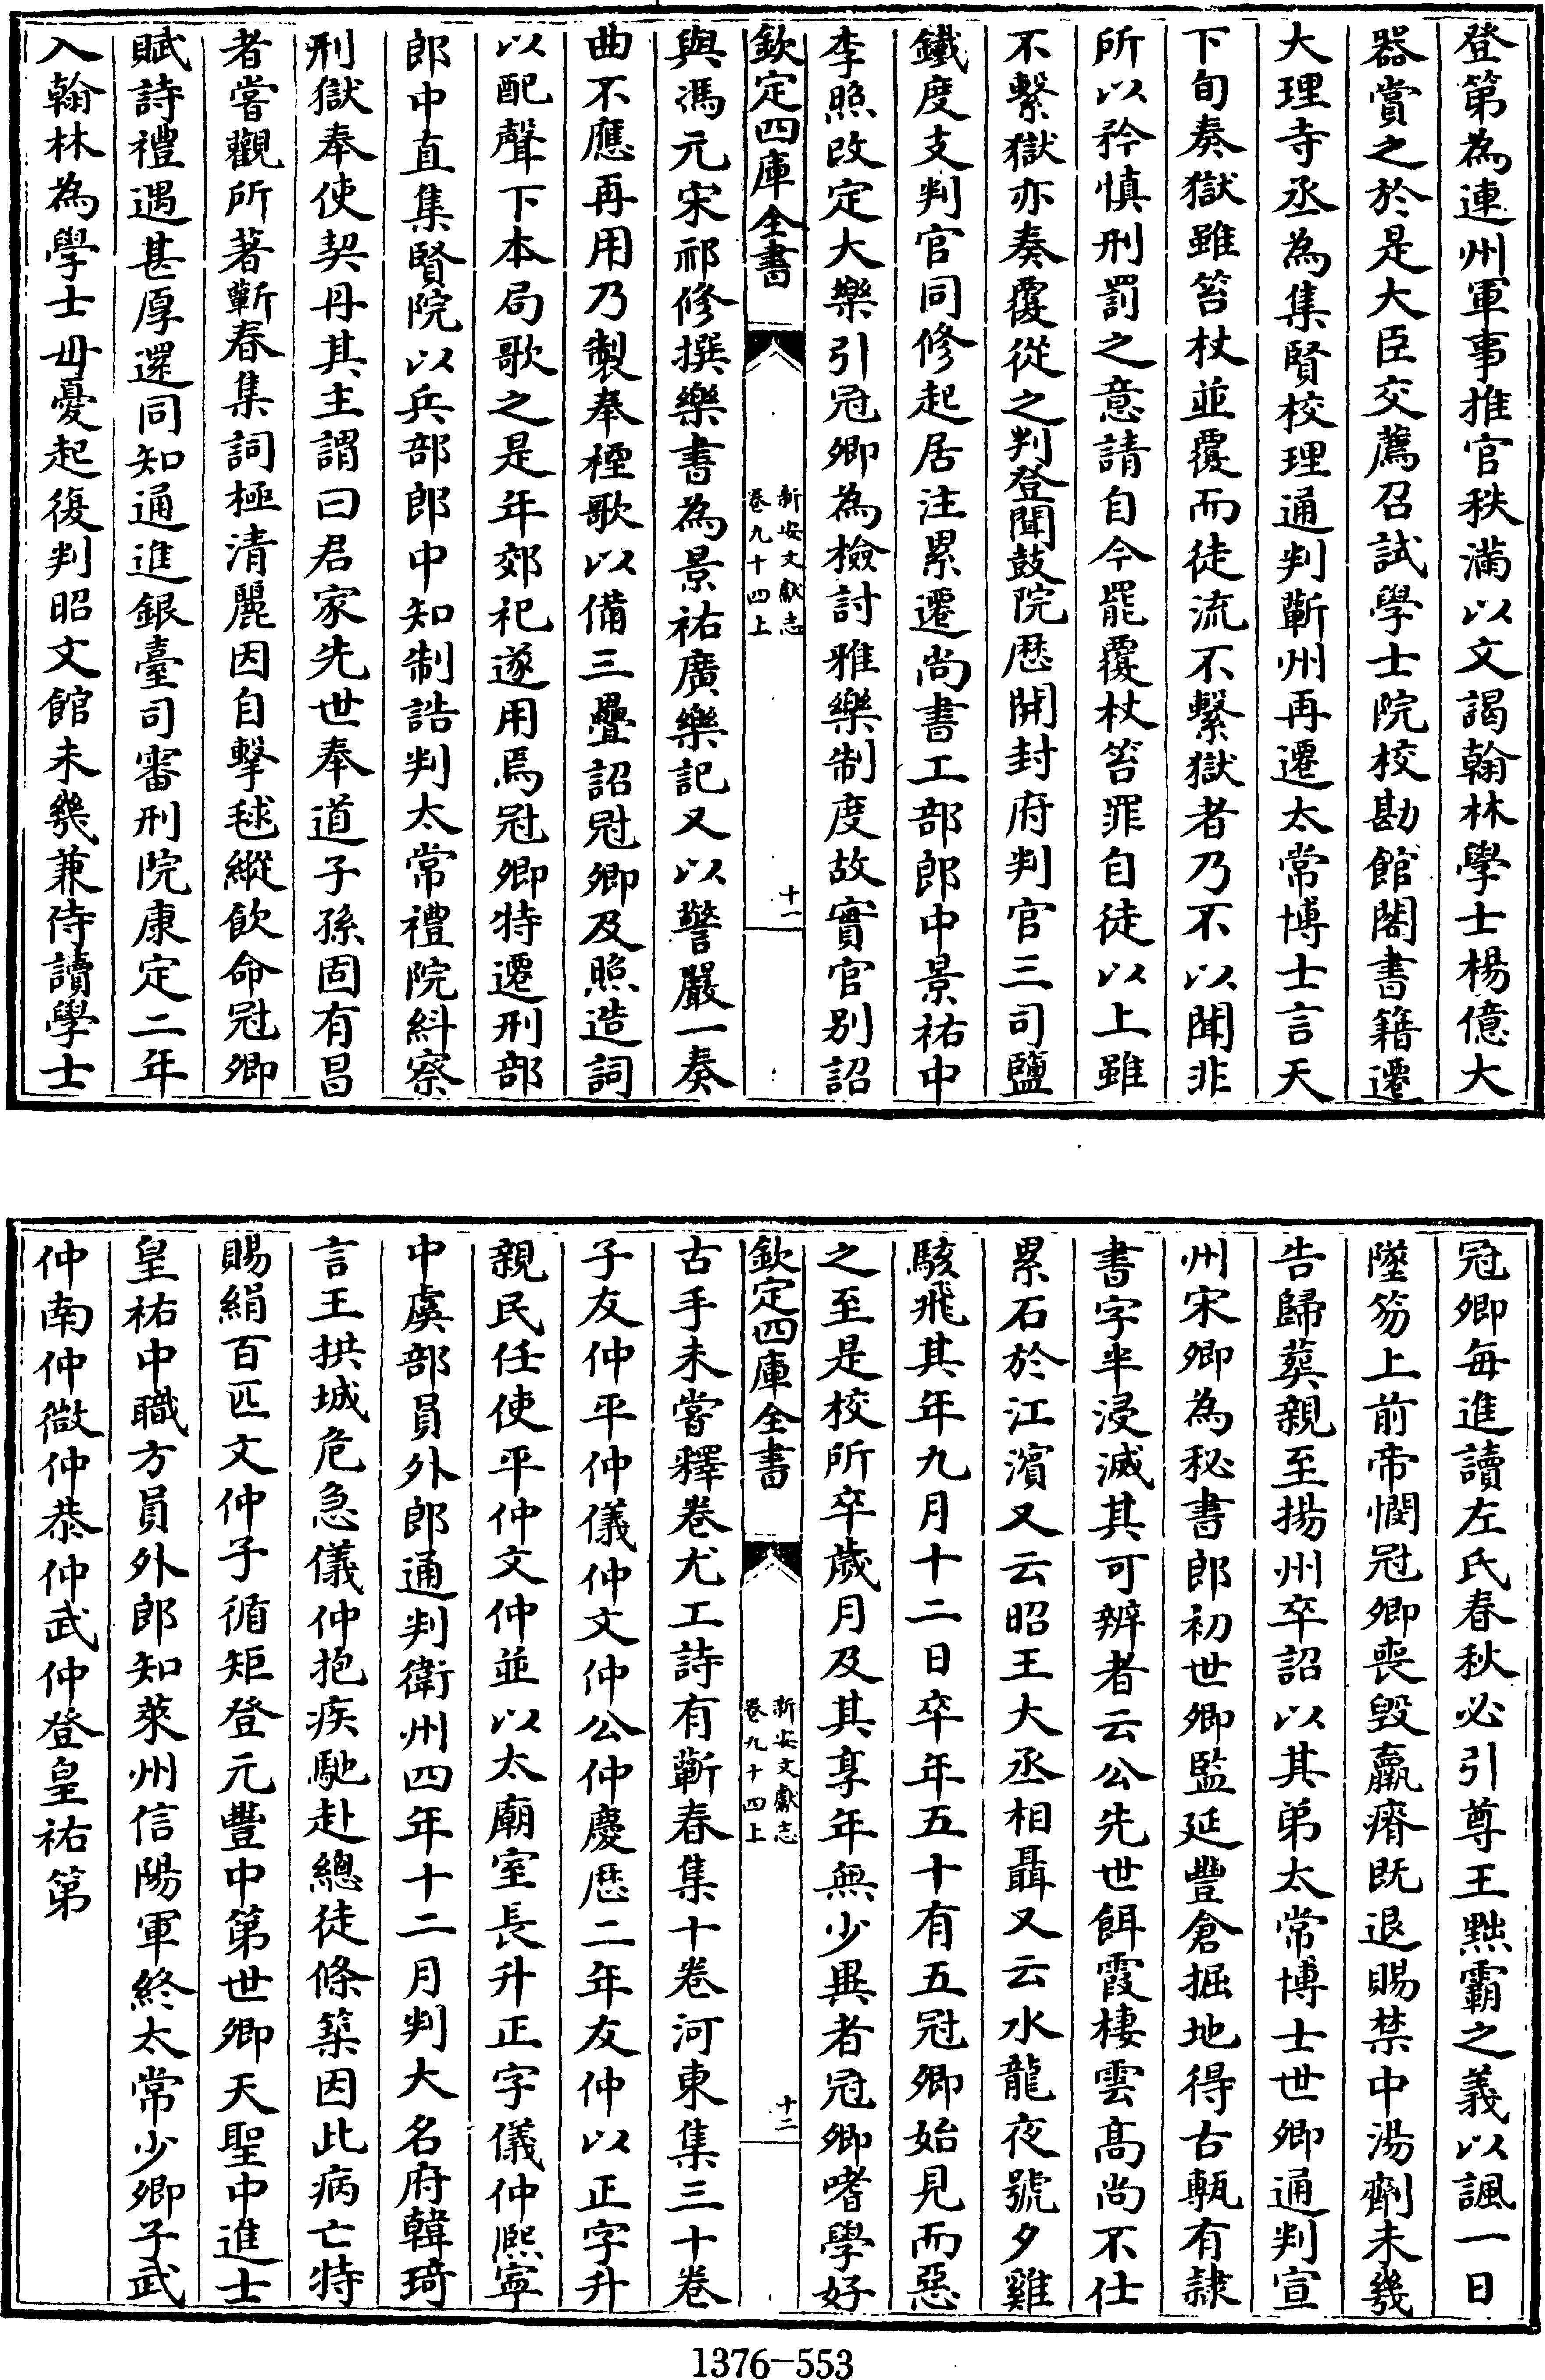 登第為連州軍事推官秩滿以文謁翰林學士楊億大
器賞之於是大臣交薦召試學士院校勘館閣書籍遷
大理寺丞為集賢校理通判蘄州再遷太常博士言天
下旬奏獄雖笞杖並覆而徒流不繫獄者乃不以聞非
所以矜慎刑罰之意請自今罷覆杖笞罪自徒以上雖
不繫獄亦奏覆從之判登聞鼓院歴開封府判官三司鹽
鐵度支判官同修起居注累遷尚書工部郎中景祐中
李照改定大樂引冠卿為檢討雅樂制度故實官别詔
欽定四庫全書
新安文獻志
卷九十四上
十一
與馮元宋祁修撰樂書為景祐廣樂記又以警嚴一奏
曲不應再用乃製奉禋歌以備三疊詔冠卿及照造詞
以配聲下本局歌之是年郊祀遂用焉冠卿特遷刑部
郎中直集賢院以兵部郎中知制誥判太常禮院糾察
刑獄奉使契丹其主謂曰君家先世奉道子孫固有昌
者嘗觀所著蘄春集詞極清麗因自擊毬縱飲命冠卿
賦詩禮遇甚厚還同知通進銀臺司審刑院康定二年
入翰林為學士母憂起復判昭文館未幾兼侍讀學士
冠卿每進讀左氏春秋必引尊王黜霸之義以諷一日
墜笏上前帝憫冠卿喪毁羸瘠既退賜禁中湯劑未幾
告歸葬親至揚州卒詔以其弟太常博士世卿通判宣
州宋卿為秘書郎初世卿監延豐倉掘地得古甎有隷
書字半浸滅其可辨者云公先世餌霞棲雲高尚不仕
累石於江濱又云昭王大丞相聶又云水龍夜號夕雞
駭飛其年九月十二日卒年五十有五冠卿始見而惡
之至是校所卒歲月及其享年無少異者冠卿嗜學好
欽定四庫全書
新安文獻志
卷九十四上
十二
古手未嘗釋卷尤工詩有蘄春集十卷河東集三十卷
子友仲平仲儀仲文仲公仲慶歴二年友仲以正字升
親民任使平仲文仲並以太廟室長升正字儀仲熙寧
中虞部員外郎通判衛州四年十二月判大名府韓琦
言王拱城危急儀仲抱疾馳赴總徒條築因此病亡特
賜絹百匹文仲子循矩登元豐中第世卿天聖中進士
皇祐中職方員外郎知萊州信陽軍終太常少卿子武
仲南仲微仲恭仲武仲登皇祐第
1376-553